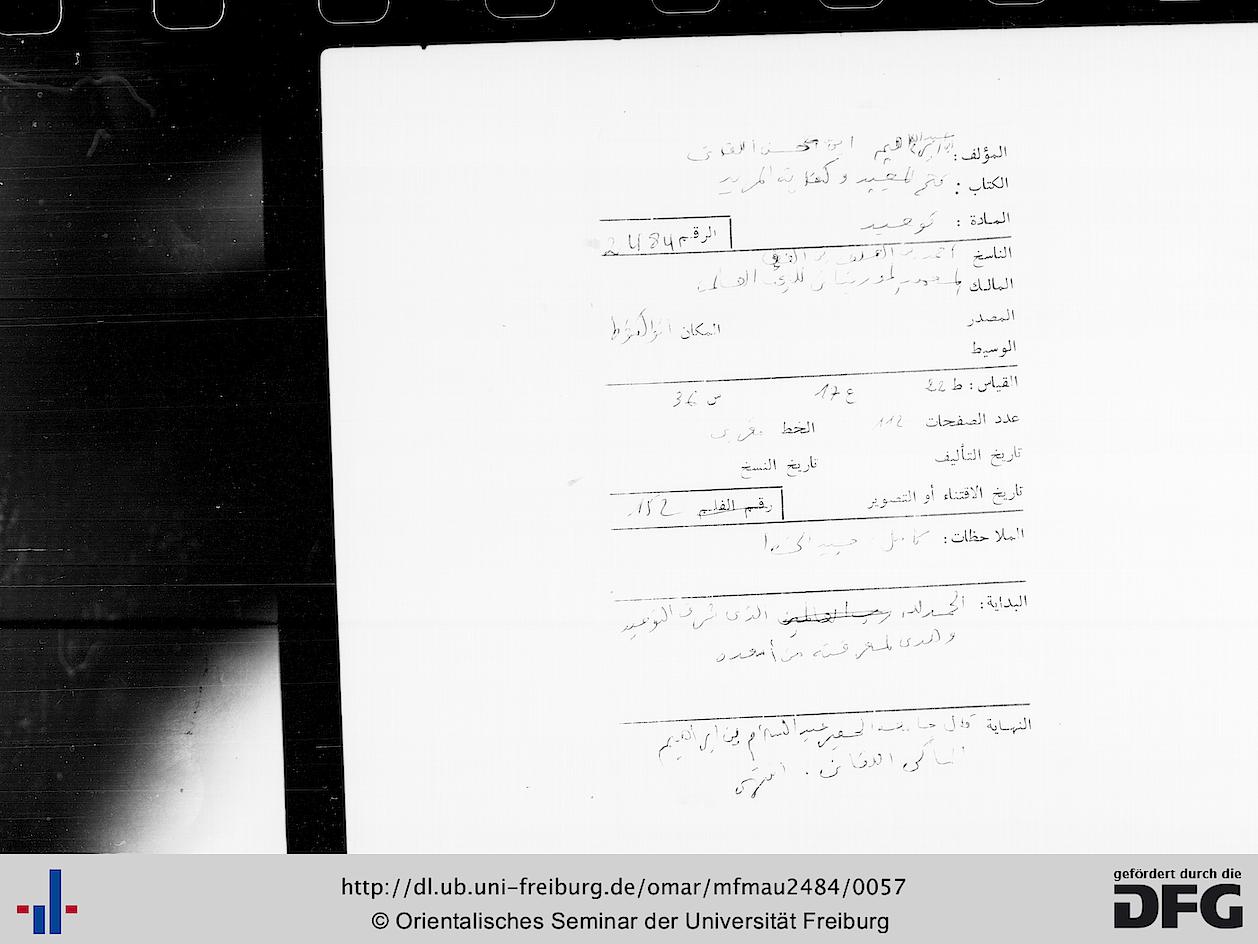 المؤلف : ابراهيم ابن حسن اللقاني
الكتاب : فتح المجيد وكفاية المريد
المادة : توحيد
الرقم 2484
الناسخ أحمد بن
المالك
المصدر
المكان
الوسيط
القياس : ط 22 ع 17 س 36
عدد الصفحات 112 الخط مغربي
تاريخ التأليف تاريخ النسخ
تاريخ الاقتناء أو التصوير
رقم الفلم 152
الملاحظات : كامل . جيد
البداية : الحمد لله رب العالمين الذي شرف التوحيد
وهدى لمعرفته من أسعده
النهاية قال جامعه الحقير عبد السلام بن ابراهيم
المالكي اللقاني . انتهى
http://dl.ub.uni-freiburg.de/omar/mfmau2484/0057
© Orientalisches Seminar der Universität Freiburg
gefördert durch die
DFG